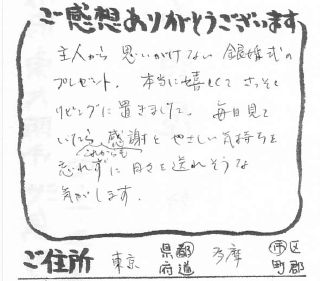 ご感想ありがとうございます
主人から 思いがけない 銀婚式の
プレゼント。本当に嬉しくて さっそく
リビングに置きました。毎日見て
いたら 感謝と やさしい気持ちを
これからも
忘れずに 日々を 送れそうな
気がします。
ご住所 東京 県都府道 多摩 市区町郡